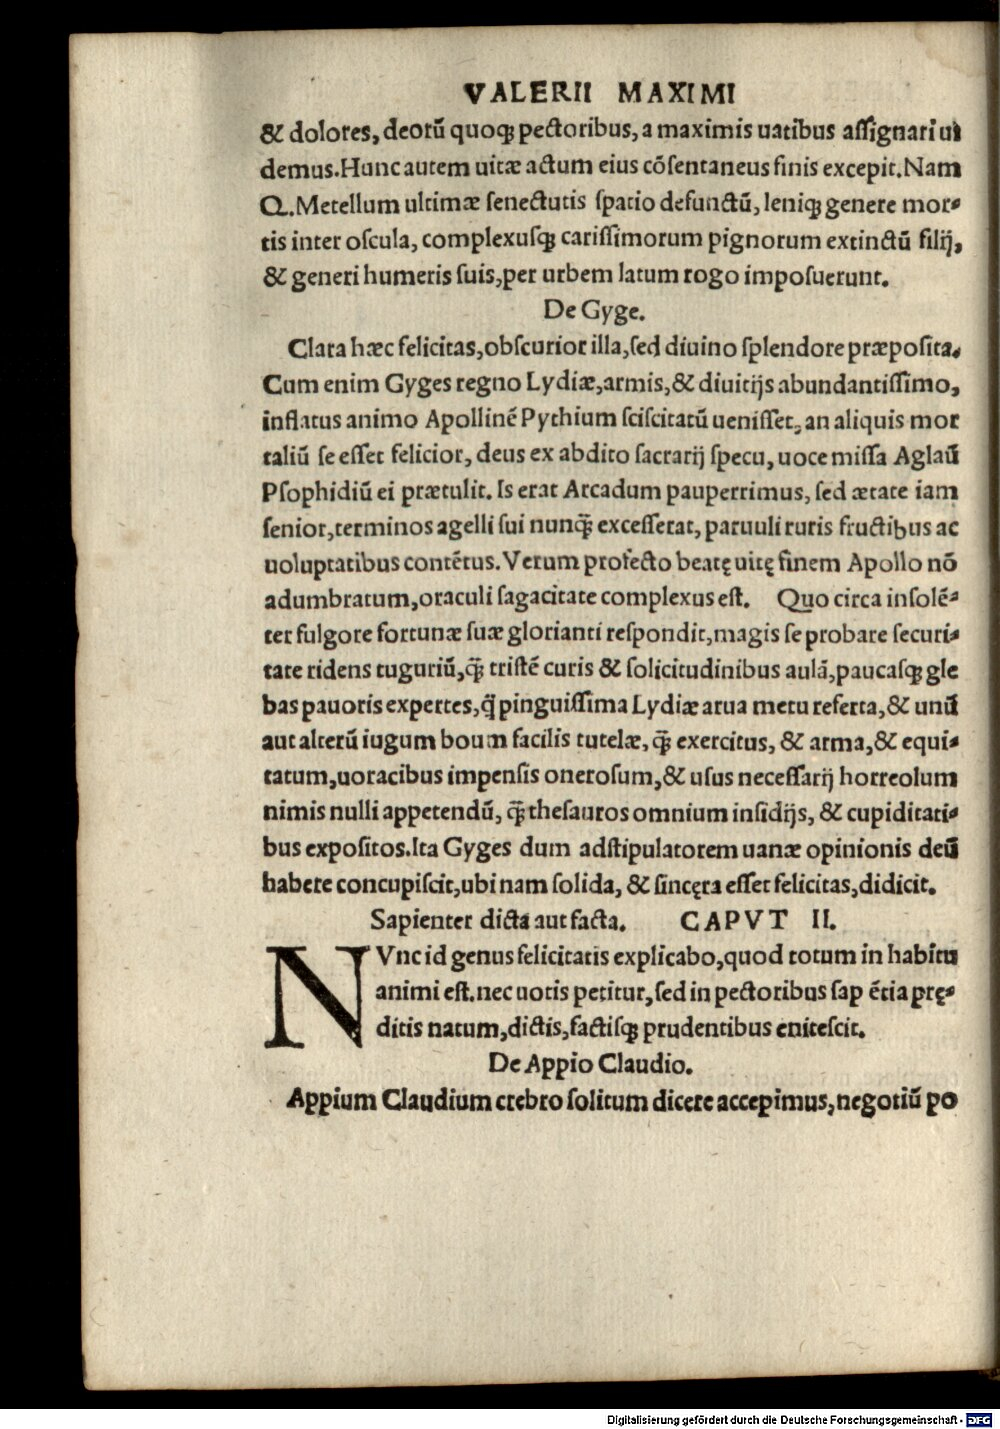 VALERII MAXIMI
& dolores, deorũ quoqꝫ pectoribus, a maximis uatibus aſſignari ui
demus. Hunc autem uitæ actum eius cõſentaneus finis excepit. Nam
Q. Metellum ultimæ ſenectutis ſpatio defunctũ, leniqꝫ genere mor⸗
tis inter oſcula, complexuſqꝫ cariſſimorum pignorum extinctũ filij,
& generi humeris ſuis, per urbem latum rogo impoſuerunt.
De Gyge.
Clara hæc felicitas, obſcurior illa, ſed diuino ſplendore præpoſita.
Cum enim Gyges regno Lydiæ, armis, & diuitijs abundantiſſimo,
inflatus animo Apollinẽ Pythium ſciſcitatũ ueniſſet, an aliquis mor
taliũ ſe eſſet felicior, deus ex abdito ſacrarij ſpecu, uoce miſſa Aglaũ
Pſophidiũ ei prætulit. Is erat Arcadum pauperrimus, ſed ætate iam
ſenior, terminos agelli ſui nunq̃ exceſſerat, paruuli ruris fructibus ac
uoluptatibus contẽtus. Verum profecto beatę uitę finem Apollo nõ
adumbratum, oraculi ſagacitate complexus eſt. Quo circa inſolẽ⸗
ter fulgore fortunæ ſuæ glorianti reſpondit, magis ſe probare ſecuri⸗
tate ridens tuguriũ, q̃ triſtẽ curis & ſolicitudinibus aulã, paucaſqꝫ gle
bas pauoris expertes, q̃ pinguiſſima Lydiæ arua metu referta, & unũ
aut alterũ iugum boum facilis tutelæ, q̃ exercitus, & arma, & equi⸗
tatum, uoracibus impenſis oneroſum, & uſus neceſſarij horreolum
nimis nulli appetendũ, q̃ theſauros omnium inſidijs, & cupiditati⸗
bus expoſitos. Ita Gyges dum adſtipulatorem uanæ opinionis deũ
habere concupiſcit, ubi nam ſolida, & ſincęra eſſet felicitas, didicit.
Sapienter dicta aut facta. CAPVT II.
NVnc id genus felicitatis explicabo, quod totum in habitu
animi eſt. nec uotis petitur, ſed in pectoribus ſap ẽtia prę⸗
ditis natum, dictis, factiſqꝫ prudentibus eniteſcit.
De Appio Claudio.
Appium Claudium crebro ſolitum dicere accepimus, negotiũ po
Digitalisierung gefördert durch die Deutsche Forschungsgemeinschaft - DFG